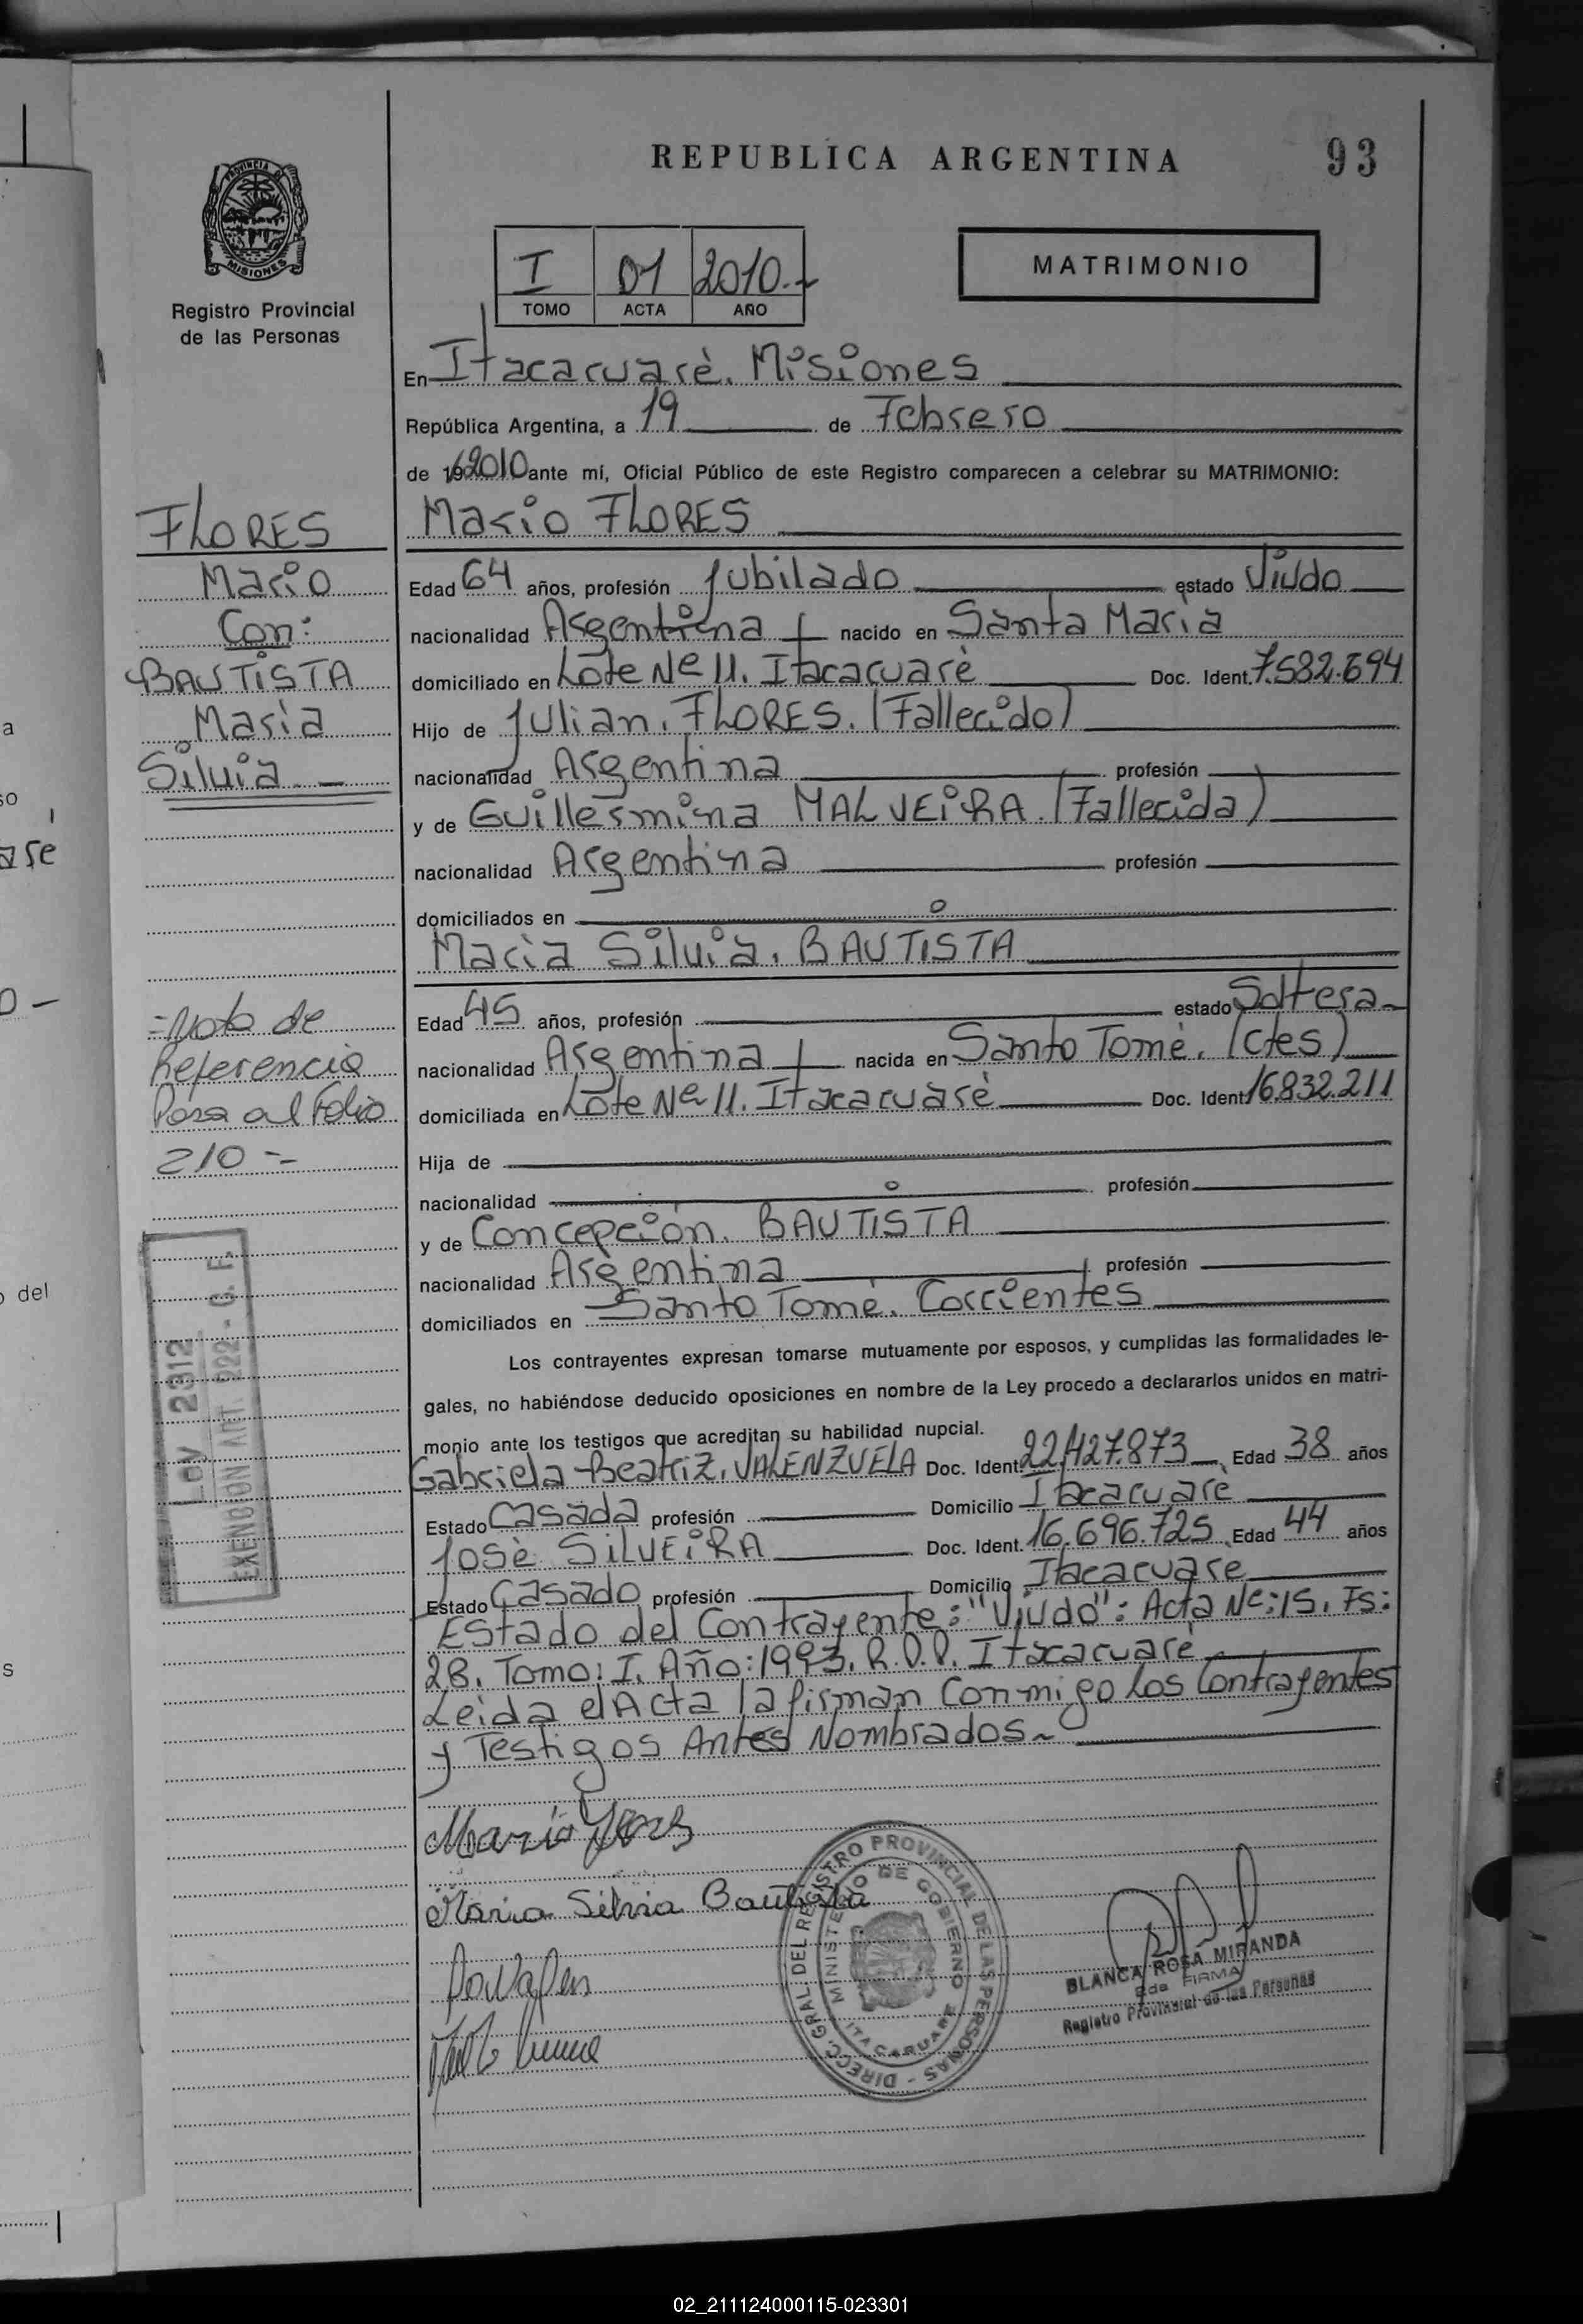 REPUBLICA ARGENTINA
93
PROVINCIA DE
MISIONES
Registro Provincial
de las Personas
I 01 2010.-
TOMO ACTA AÑO
MATRIMONIO
En Itacaruarè. Misiones
República Argentina, a 19 de Febrero
de 19 2010 ante mí, Oficial Público de este Registro comparecen a celebrar su MATRIMONIO:
Mario FLORES
Edad 64 años, profesión Jubilado estado Viudo
nacionalidad Argentina nacido en Santa Maria
domiciliado en Lote Nº 11. Itacaruarè Doc. Ident. 7.582.694
Hijo de Julian. FLORES. (Fallecido)
nacionalidad Argentina profesión
y de Guillermina MALVEiRA. (Fallecida)
nacionalidad Argentina profesión
domiciliados en
Maria Silvia. BAUTISTA
Edad 45 años, profesión estado Soltera
nacionalidad Argentina nacida en Santo Tomè. (Ctes)
domiciliada en Lote Nº 11. Itacaruarè Doc. Ident. 16.832.211
Hija de
nacionalidad profesión
y de Concepciòn. BAUTISTA
nacionalidad Argentina profesión
domiciliados en Santo Tomè. Corrientes
Los contrayentes expresan tomarse mutuamente por esposos, y cumplidas las formalidades le-
gales, no habiéndose deducido oposiciones en nombre de la Ley procedo a declararlos unidos en matri-
monio ante los testigos que acreditan su habilidad nupcial.
Gabriela Beatriz. VALENZUELA Doc. Ident. 22.427.873 Edad 38 años
Estado Casada profesión Domicilio Itacaruarè
Josè SiLVEiRA Doc. Ident. 16.696.725 Edad 44 años
Estado Casado profesión Domicilio Itacaruare
Estado del Contrayente: "Viudo": Acta Nº: 15. Fs:
28. Tomo: I. Año: 1993. R.P.P. Itacaruarè
Leida el Acta la firman Conmigo Los Contrayentes
y Testigos Antes Nombrados
Mario Flores
Maria Silvia Bautista
DIRECC. GRAL. DEL REGISTRO PROVINCIAL DE LAS PERSONAS
MINISTERIO DE GOBIERNO
ITACARUARE
BLANCA ROSA MIRANDA
FIRMA
Registro Provincial de las Personas
FLORES
Mario
Con:
BAUTiSTA
Maria
Silvia.-
=Nota de
Referencia
Pasa al Folio
210 =
Ley 2312
EXENCION ART. 922 - C. F.
are
del
02_211124000115-023301